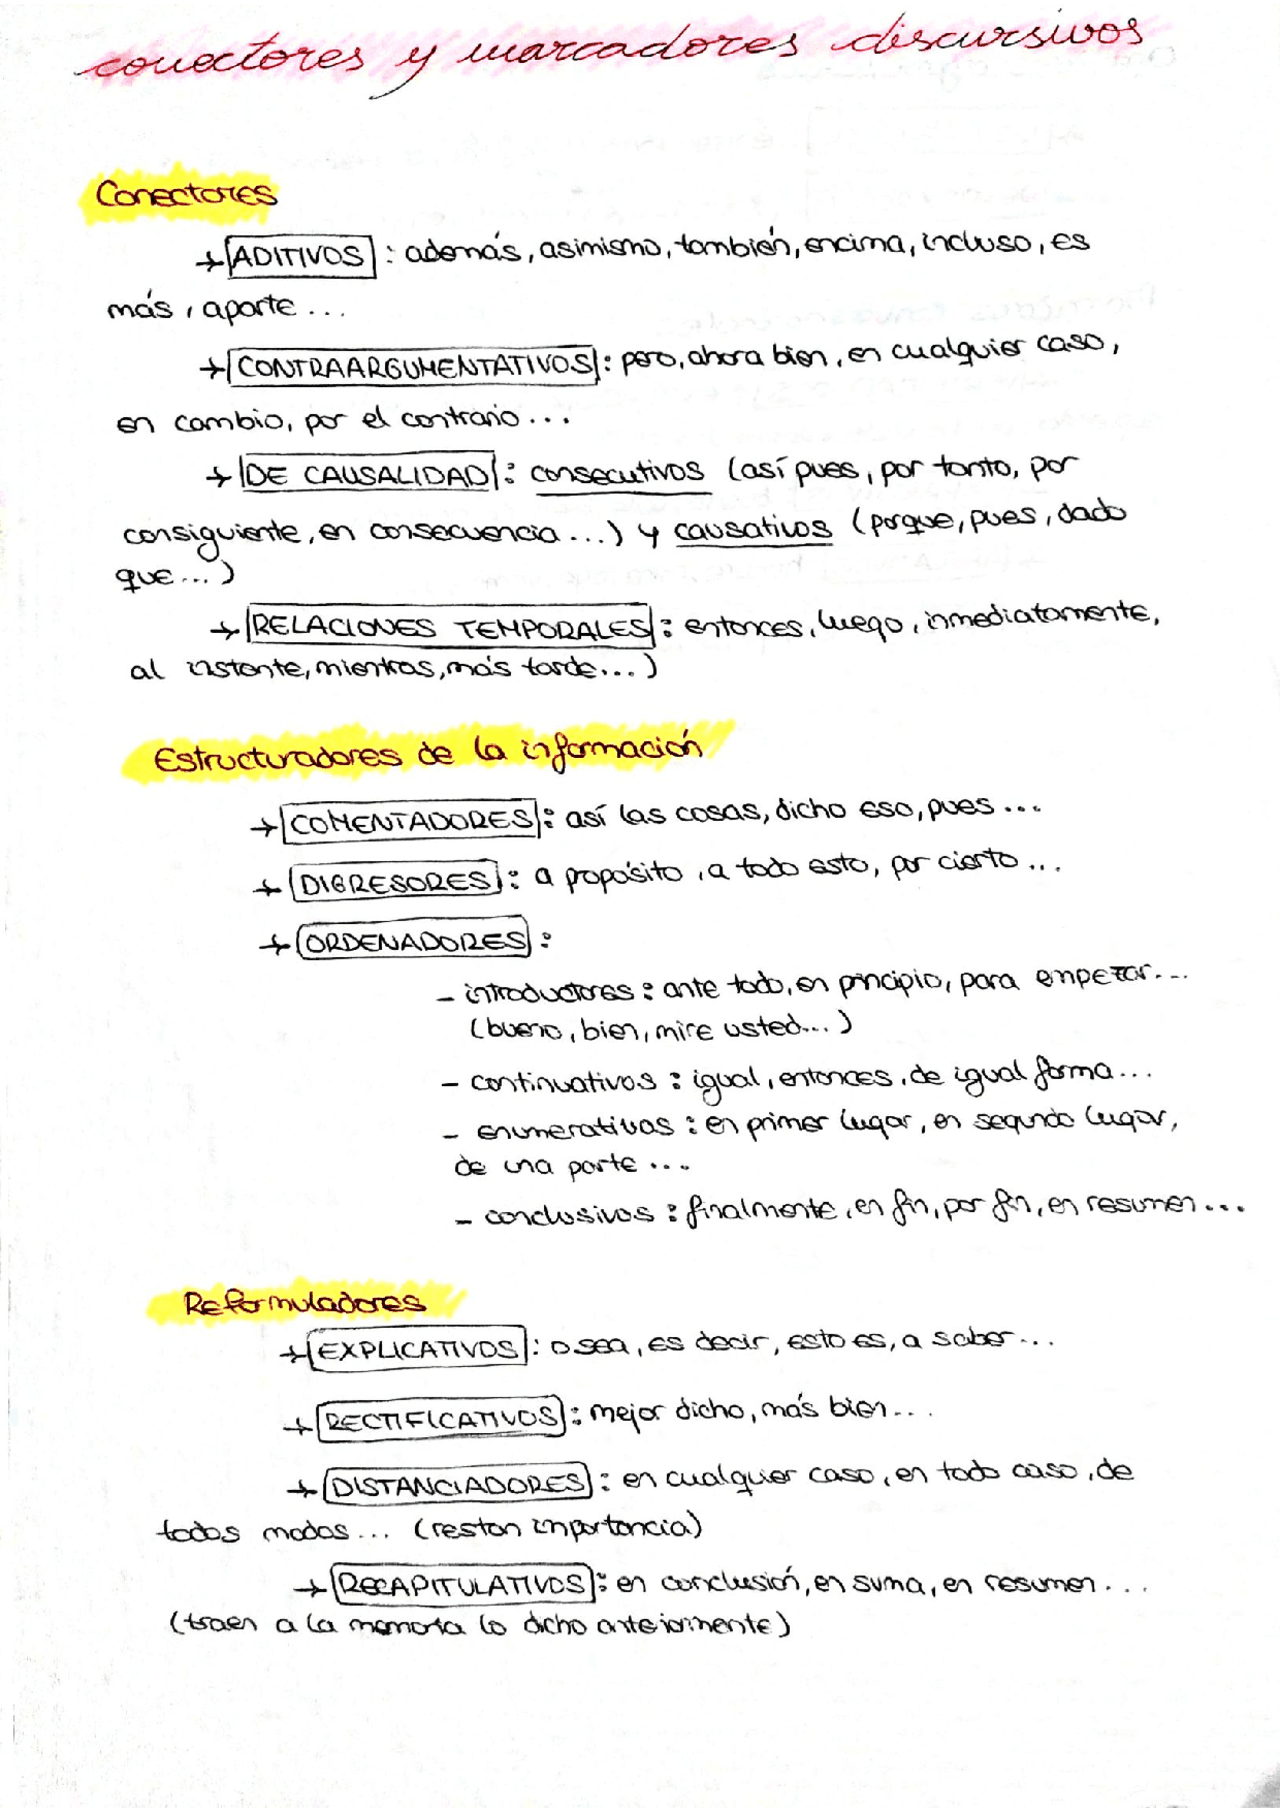 conectores y marcadores discursivos
Conectores
→ ADITIVOS : además, asimismo, también, encima, incluso, es
más, aparte...
→ CONTRAARGUMENTATIVOS : pero, ahora bien, en cualquier caso,
en cambio, por el contrario...
→ DE CAUSALIDAD : consecutivos (así pues, por tanto, por
consiguiente, en consecuencia...) y causativos (porque, pues, dado
que...)
→ RELACIONES TEMPORALES : entonces, luego, inmediatamente,
al instante, mientras, más tarde...)
Estructuradores de la información
→ COMENTADORES : así las cosas, dicho eso, pues...
→ DIGRESORES : a propósito, a todo esto, por cierto...
→ ORDENADORES :
- introductores : ante todo, en principio, para empezar...
(bueno, bien, mire usted...)
- continuativos : igual, entonces, de igual forma...
- enumerativos : en primer lugar, en segundo lugar,
de una parte...
- conclusivos : finalmente, en fin, por fin, en resumen...
Reformuladores
→ EXPLICATIVOS : o sea, es decir, esto es, a saber...
→ RECTIFICATIVOS : mejor dicho, más bien...
→ DISTANCIADORES : en cualquier caso, en todo caso, de
todos modos... (restan importancia)
→ RECAPITULATIVOS : en conclusión, en suma, en resumen...
(traen a la memoria lo dicho anteriormente)